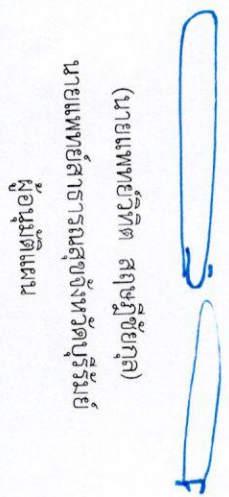 (นายแพทย์วิทิต สฤษฎีชัยกุล)
นายแพทย์สาธารณสุขจังหวัดบุรีรัมย์
ผู้อนุมัติแผน